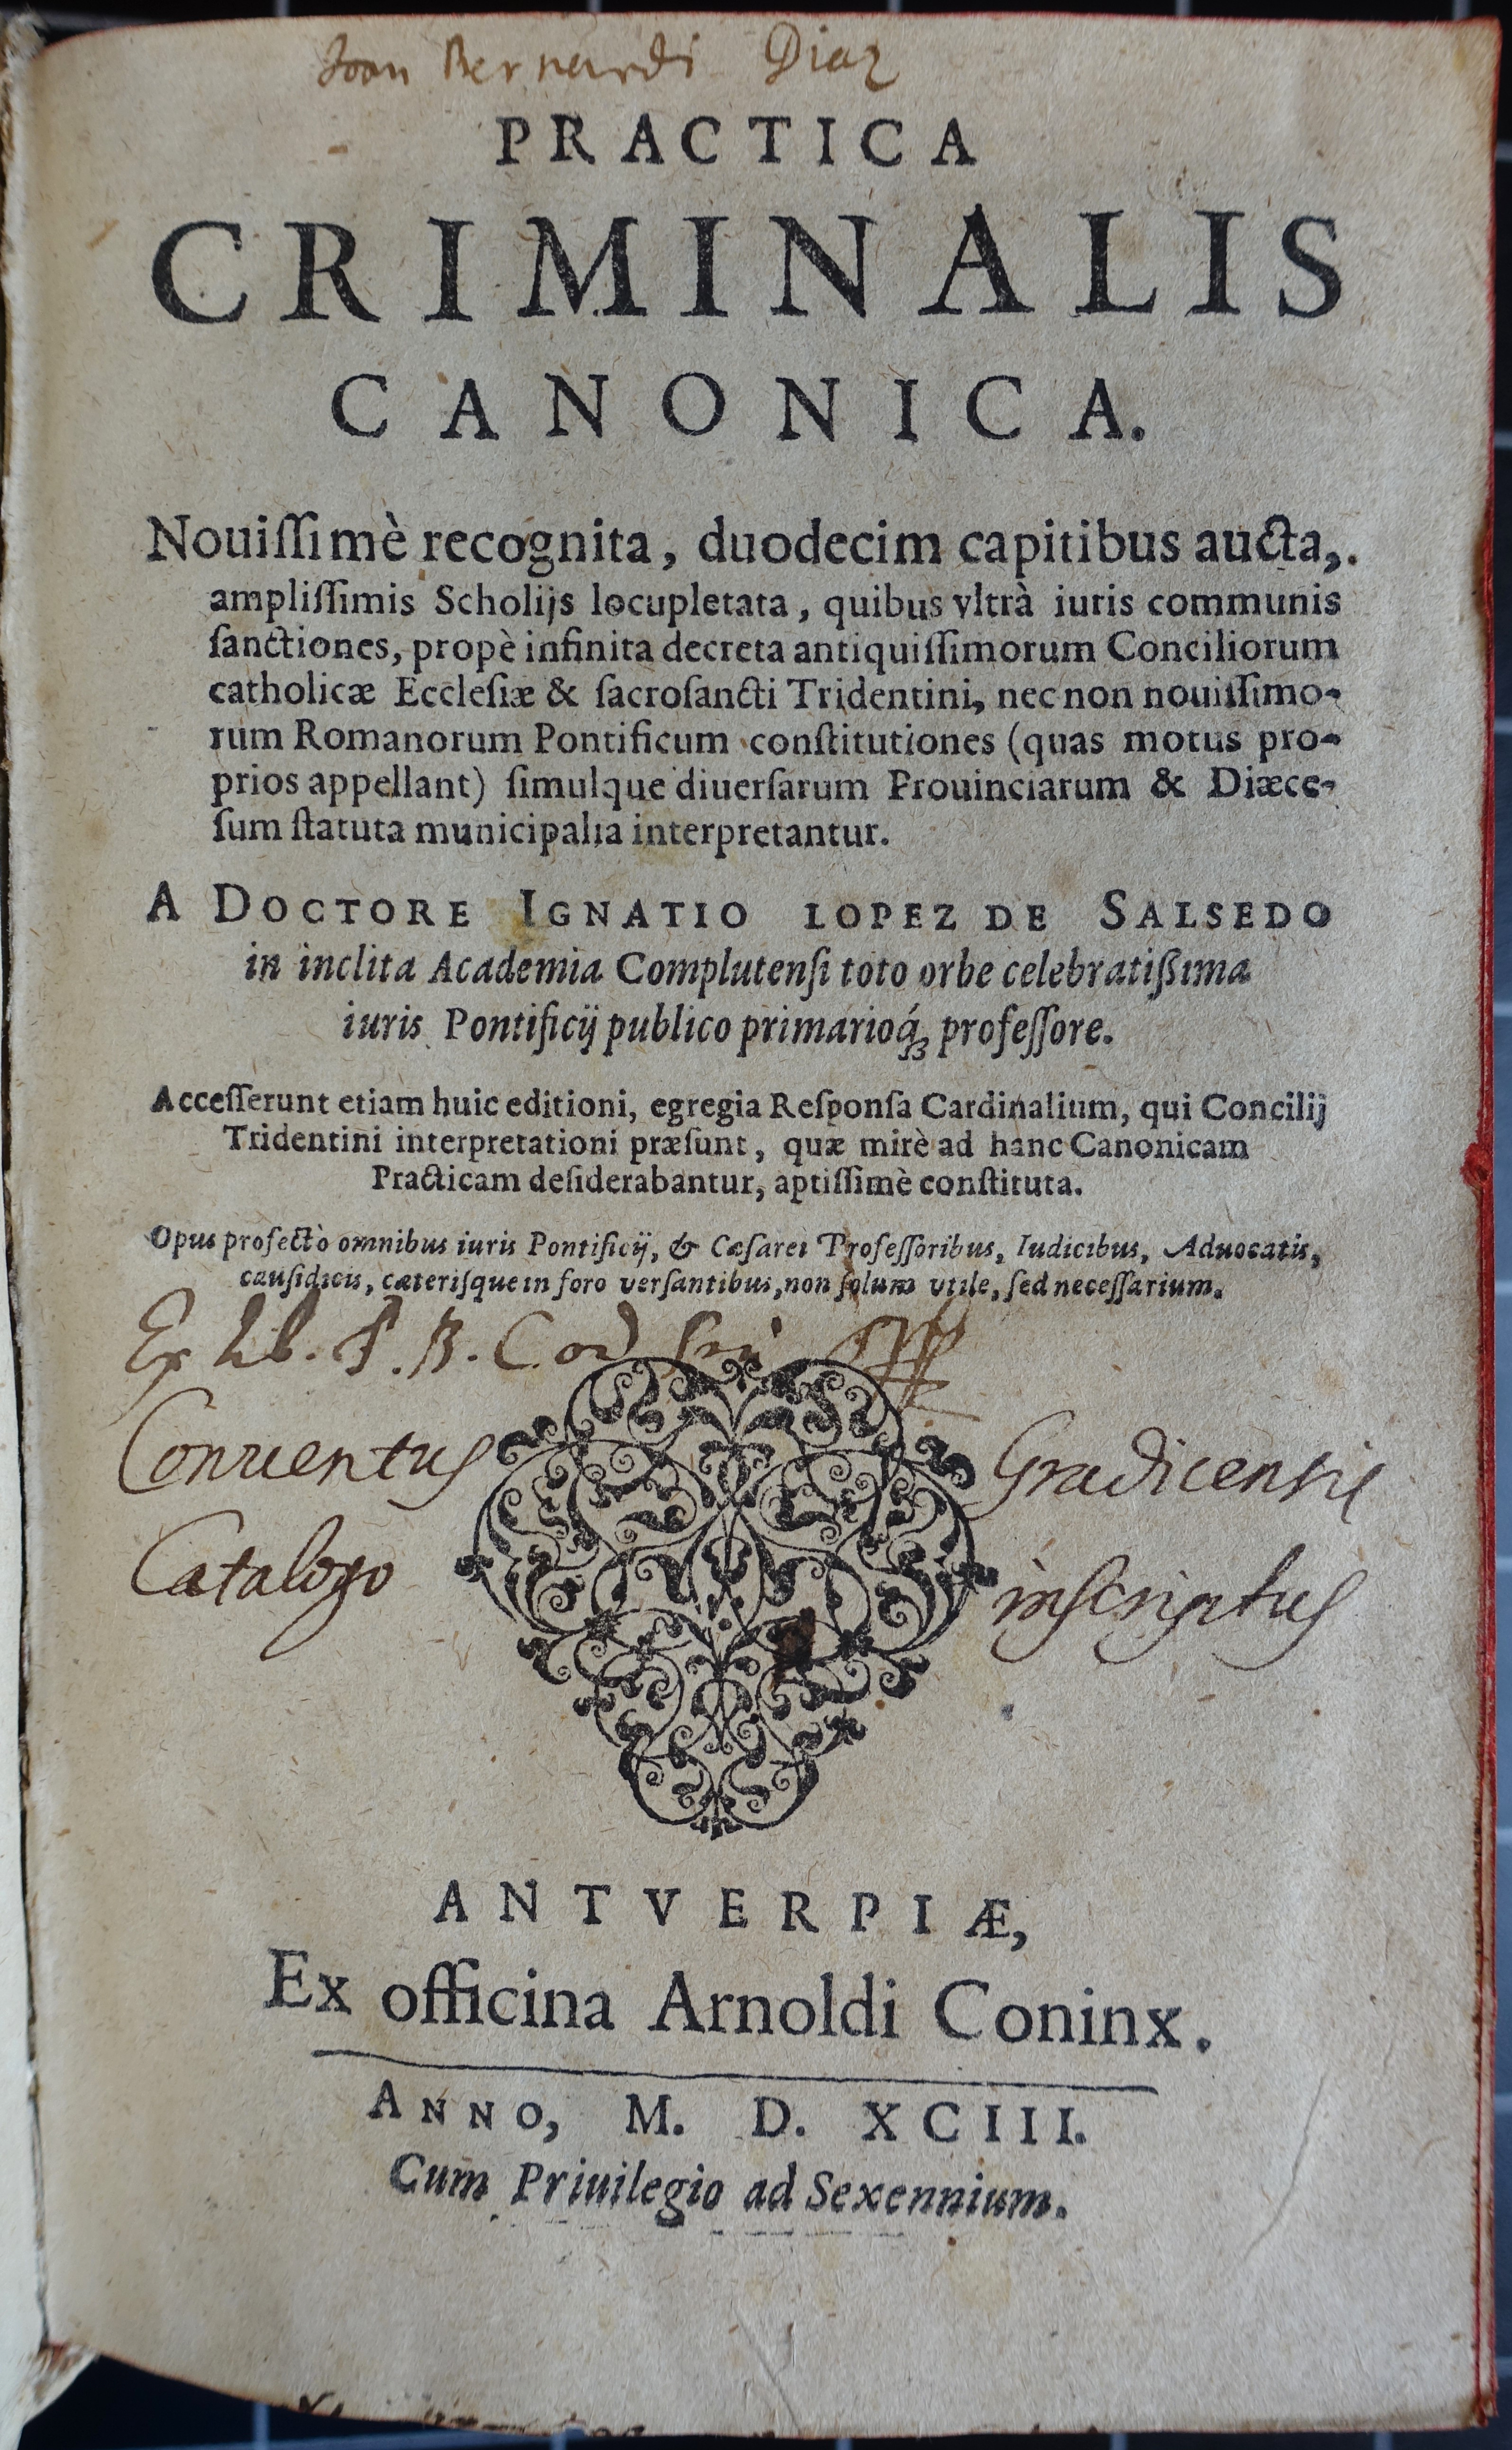 Joan Bernardi Diaz
PRACTICA
CRIMINALIS
CANONICA.
Nouiſſimè recognita, duodecim capitibus aucta,.
ampliſſimis Scholijs locupletata, quibus vltrà iuris communis
ſanctiones, propè infinita decreta antiquiſſimorum Conciliorum
catholicæ Eccleſiæ & ſacroſancti Tridentini, nec non nouiſſimo-
rum Romanorum Pontificum conſtitutiones (quas motus pro-
prios appellant) ſimulque diuerſarum Prouinciarum & Diæce-
ſum ſtatuta municipalia interpretantur.
A DOCTORE IGNATIO LOPEZ DE SALSEDO
in inclita Academia Complutenſi toto orbe celebratißima
iuris Pontificij publico primarioq́ꝫ profeſſore.
Acceſſerunt etiam huic editioni, egregia Reſponſa Cardinalium, qui Concilij
Tridentini interpretationi præſunt, quæ mirè ad hanc Canonicam
Practicam deſiderabantur, aptiſſimè conſtituta.
Opus profectò omnibus iuris Pontificij, & Cæſarei Profeſſoribus, Iudicibus, Aduocatis,
cauſidicis, cæteriſque in foro verſantibus, non ſolum vtile, ſed neceſſarium.
Ex Lib. P. B.
Conventus Gradicensis
Catalogo inscriptus
ANTVERPIÆ,
Ex officina Arnoldi Coninx.
ANNO, M. D. XCIII.
Cum Priuilegio ad Sexennium.